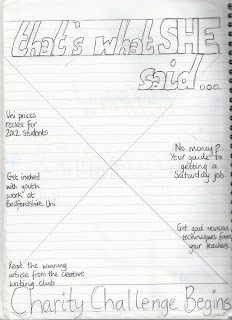 that's what SHE
said...
Uni prices
rocket for
2012 students
No money?
Your guide to
getting a
Saturday job.
Get involved
with youth
work at
Bedfordshire Uni
Get good revision
techniques from
your teachers.
Read the winning
article from the creative
writing club
Charity Challenge Begins